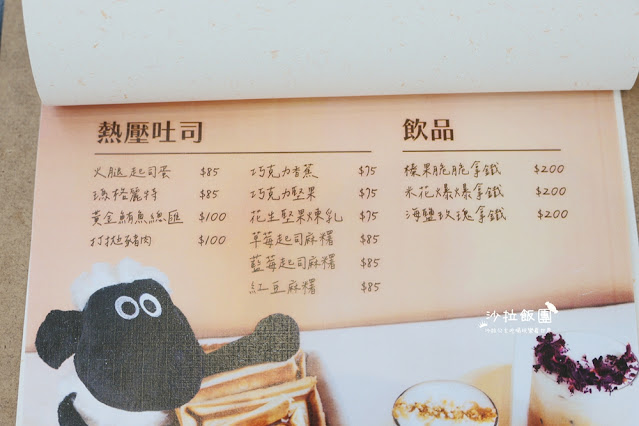 熱壓吐司
火腿起司蛋 $85
瑪格麗特 $85
黃金鮪魚總匯 $100
打拋豬肉 $100
巧克力香蕉 $75
巧克力堅果 $75
花生堅果煉乳 $75
草莓起司麻糬 $85
藍莓起司麻糬 $85
紅豆麻糬 $85
飲品
榛果脆脆拿鐵 $200
米花爆爆拿鐵 $200
海鹽玫瑰拿鐵 $200
沙拉飯團